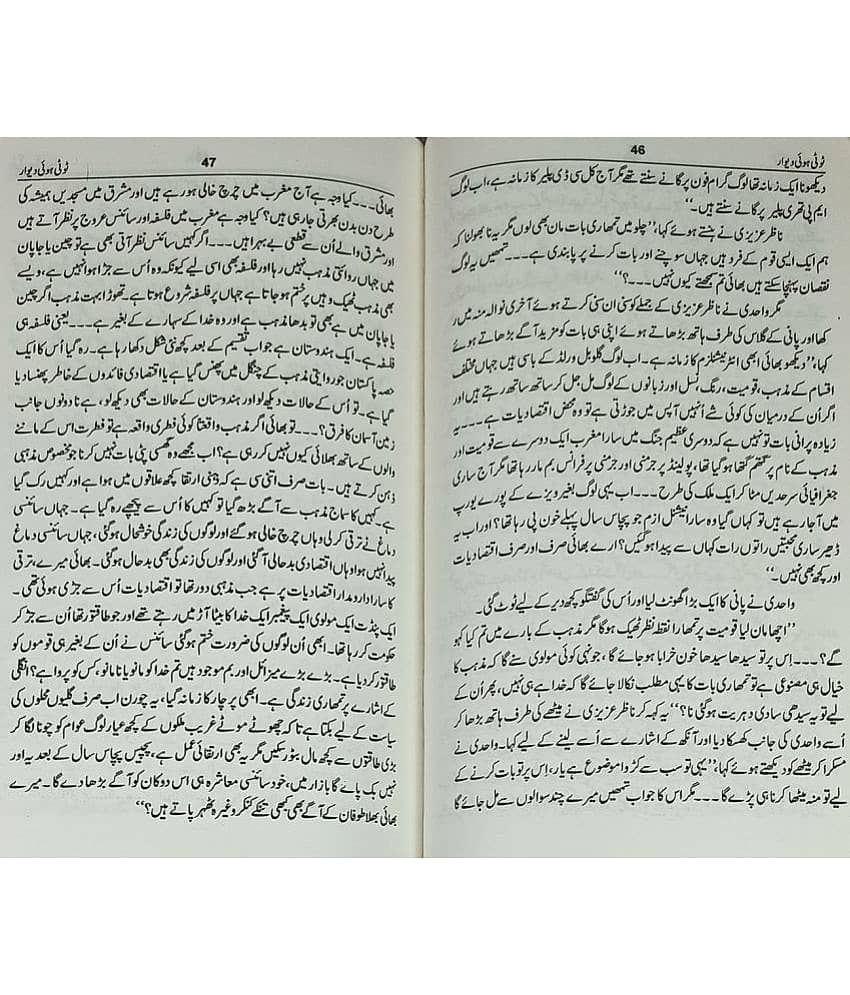 46
ٹوٹی ہوئی دیوار
دیکھو نا ایک زمانہ تھا لوگ گرام فون پر گانے سنتے تھے مگر آج کل سی ڈی پلیر کا زمانہ ہے، اب لوگ
ایم پی تھری پلیر پر گانے سنتے ہیں۔“
ناظر عزیزی نے ہنستے ہوئے کہا، ”چلو میں تمھاری بات مان بھی لوں مگر یہ نا بھولنا کہ
ہم ایک ایسی قوم کے فرد ہیں جہاں سوچنے اور بات کرنے پر پابندی ہے۔۔۔ تمھیں یہ لوگ
نقصان پہنچا سکتے ہیں بھائی تم سمجھتے کیوں نہیں۔۔۔؟“
مگر واحدی نے ناظر عزیزی کے جملے کو سنی ان سنی کرتے ہوئے آخری نوالہ منہ میں ر
کھا اور پانی کے گلاس کی طرف ہاتھ بڑھاتے ہوئے اپنی ہی بات کو مزید آگے بڑھاتے ہوئے
کہا، ”دیکھو بھائی ابھی انٹرنیشنلزم کا زمانہ ہے۔ اب لوگ گلوبل ورلڈ کے باسی ہیں جہاں مختلف
اقسام کے مذہب، قومیت، رنگ، نسل اور زبانوں کے لوگ مل جل کر ساتھ ساتھ رہتے ہیں اور
اگر ان کے درمیان کی کوئی شے اُنھیں آپس میں جوڑتی ہے تو وہ محض اقتصادیات ہے۔۔۔ یہ
زیادہ پرانی بات تو نہیں ہے کہ دوسری عظیم جنگ میں سارا مغرب ایک دوسرے سے قومیت اور
مذہب کے نام پر گتھم گتھا ہو گیا تھا، پولینڈ پر جرمنی اور جرمنی پر فرانس بم مار رہا تھا مگر آج ساری
جغرافیائی سرحدیں مٹا کر ایک ملک کی طرح۔۔۔ اب یہی لوگ بغیر ویزے کے پورے یورپ
میں آ جا رہے ہیں تو کہاں گیا وہ سارا نیشنل ازم جو پچاس سال پہلے خون پی رہا تھا؟ اور اب یہ
ڈھیر ساری محبتیں راتوں رات کہاں سے پیدا ہو گئیں؟ ارے بھائی صرف اور صرف اقتصادیات
اور کچھ بھی نہیں۔“
واحدی نے پانی کا ایک بڑا گھونٹ لیا اور اُس کی گفتگو کچھ دیر کے لیے ٹوٹ گئی۔
”اچھا مان لیا قومیت پر تمھارا نقطہ نظر ٹھیک ہوگا مگر مذہب کے بارے میں تم کیا کہو
گے؟۔۔۔ اِس پر تو سیدھا سیدھا خون خرابا ہو جائے گا، جونہی کوئی مولوی سنے گا کہ مذہب کا
خیال ہی مصنوعی ہے تو تمھاری بات کا یہی مطلب نکالا جائے گا کہ خدا ہے ہی نہیں، پھر اُن کے
لیے تو یہ سیدھی سادی دہریت ہو گئی نا؟“ یہ کہہ کر ناظر عزیزی نے میٹھے کی طرف ہاتھ بڑھا کر
اُسے واحدی کی جانب کھسکا دیا اور آنکھ کے اشارے سے اُسے لینے کے لیے کہا۔ واحدی نے
مسکرا کر میٹھے کو دیکھتے ہوئے کہا، ”یہی تو سب سے کڑوا موضوع ہے یار، اِس پر تو بات کرنے کے
لیے تو منہ میٹھا کرنا ہی پڑے گا۔۔۔ مگر اس کا جواب تمھیں میرے چند سوالوں سے مل جائے گا
47
ٹوٹی ہوئی دیوار
بھائی۔۔۔ کیا وجہ ہے آج مغرب میں چرچ خالی ہو رہے ہیں اور مشرق میں مسجدیں ہمیشہ کی
طرح دن بدن بھرتی جا رہی ہیں؟ کیا وجہ ہے مغرب میں فلسفہ اور سائنس عروج پر نظر آتے ہیں
اور مشرق والے اُن سے قطعی بے بہرا ہیں۔۔۔ اگر کہیں سائنس نظر آتی بھی ہے تو چین یا جاپان
میں جہاں روائتی مذہب نہیں رہا اور فلسفہ بھی اسی لیے کیونکہ وہ اُس سے جڑا ہوا نہیں ہے، ویسے
بھی مذہب ٹھیک وہیں پر ختم ہو جاتا ہے جہاں پر فلسفہ شروع ہوتا ہے۔ تھوڑا بہت مذہب اگر چین
یا جاپان میں ہے بھی تو بدھا مذہب ہے اور وہ خدا کے سہارے کے بغیر ہے۔۔۔ یعنی فلسفہ ہی
فلسفہ ہے۔ ایک ہندوستان ہے جو اب تقسیم کے بعد کچھ نئی شکل دکھا رہا ہے۔ رہ گیا اُس کا ایک
حصہ پاکستان جو روایتی مذہب کے چنگل میں پھنس گیا ہے یا اقتصادی فائدوں کے خاطر پھنسا دیا
گیا ہے۔ تو اُس کے حالات دیکھ لو اور ہندوستان کے حالات بھی دیکھ لو، ہے نا دونوں جانب
زمین آسمان کا فرق؟۔۔۔ تو بھائی اگر مذہب واقعتاً کوئی فطری واقعہ ہے تو فطرت اس کے ماننے
والوں کے ساتھ بھلائی کیوں نہیں کر رہی ہے؟ اب مجھے وہ گھسی پٹی بات نہیں کرنا جو مخصوص مذہبی
ذہن کرتے ہیں۔ بات صرف اتنی سی ہے کہ ذہنی ارتقا کچھ علاقوں میں ہوا ہے اور کہیں رک گیا
ہے۔ کہیں کا سماج مذہب سے آگے بڑھ گیا تو کہیں کا اُس سے پیچھے رہ گیا ہے۔ جہاں سائنسی
دماغ نے ترقی کر لی وہاں چرچ خالی ہو گئے اور لوگوں کی زندگی خوشحال ہو گئی، جہاں سائنسی دماغ
پیدا نہیں ہوا وہاں اقتصادی بدحالی آ گئی اور لوگوں کی زندگی بھی بدحال ہو گئی۔ بھائی میرے، ترقی
کا سارا دارومدار اقتصادیات پر ہے جب مذہبی دور تھا تو اقتصادیات اُس سے جڑی ہوئی تھی۔
ایک پنڈت ایک مولوی ایک پیغمبر ایک خدا کا بیٹا آڑ میں رہتے تھے اور جو طاقتور تھا اُن سے جڑ کر
حکومت کر رہا تھا۔ ابھی اُن لوگوں کی ضرورت ختم ہو گئی سائنس نے اُن کے بغیر ہی قوموں کو
طاقتور کر دیا ہے۔ بڑے بڑے میزائل اور بم موجود ہیں تم خدا کو مانو یا نا مانو، کس کو پروا ہے؟ انگلی
کے اشارے پر تمھاری زندگی ہے۔ ابھی پرچار کا زمانہ گیا، یہ چورن اب صرف گلیوں محلوں کی
سیاست کے لیے بکتا ہے تا کہ چھوٹے موٹے غریب ملکوں کے کچھ عیار لوگ عوام کو چونا لگا کر
بڑی طاقتوں سے کچھ مال بٹور سکیں مگر یہ بھی ارتقائی عمل ہے، پچیس پچاس سال کے بعد یہ اور
نہیں بک پائے گا بازار میں، خود سائنسی معاشرہ ہی اس دوکان کو آگے بڑھا دے گا۔ میرے
بھائی بھلا طوفان کے آگے بھی کبھی تنکے کنکر وغیرہ ٹھہر پاتے ہیں؟“